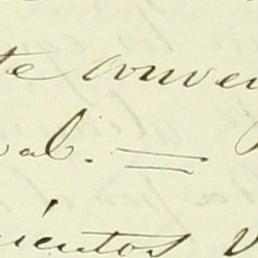 te conven
val. =
cientos v